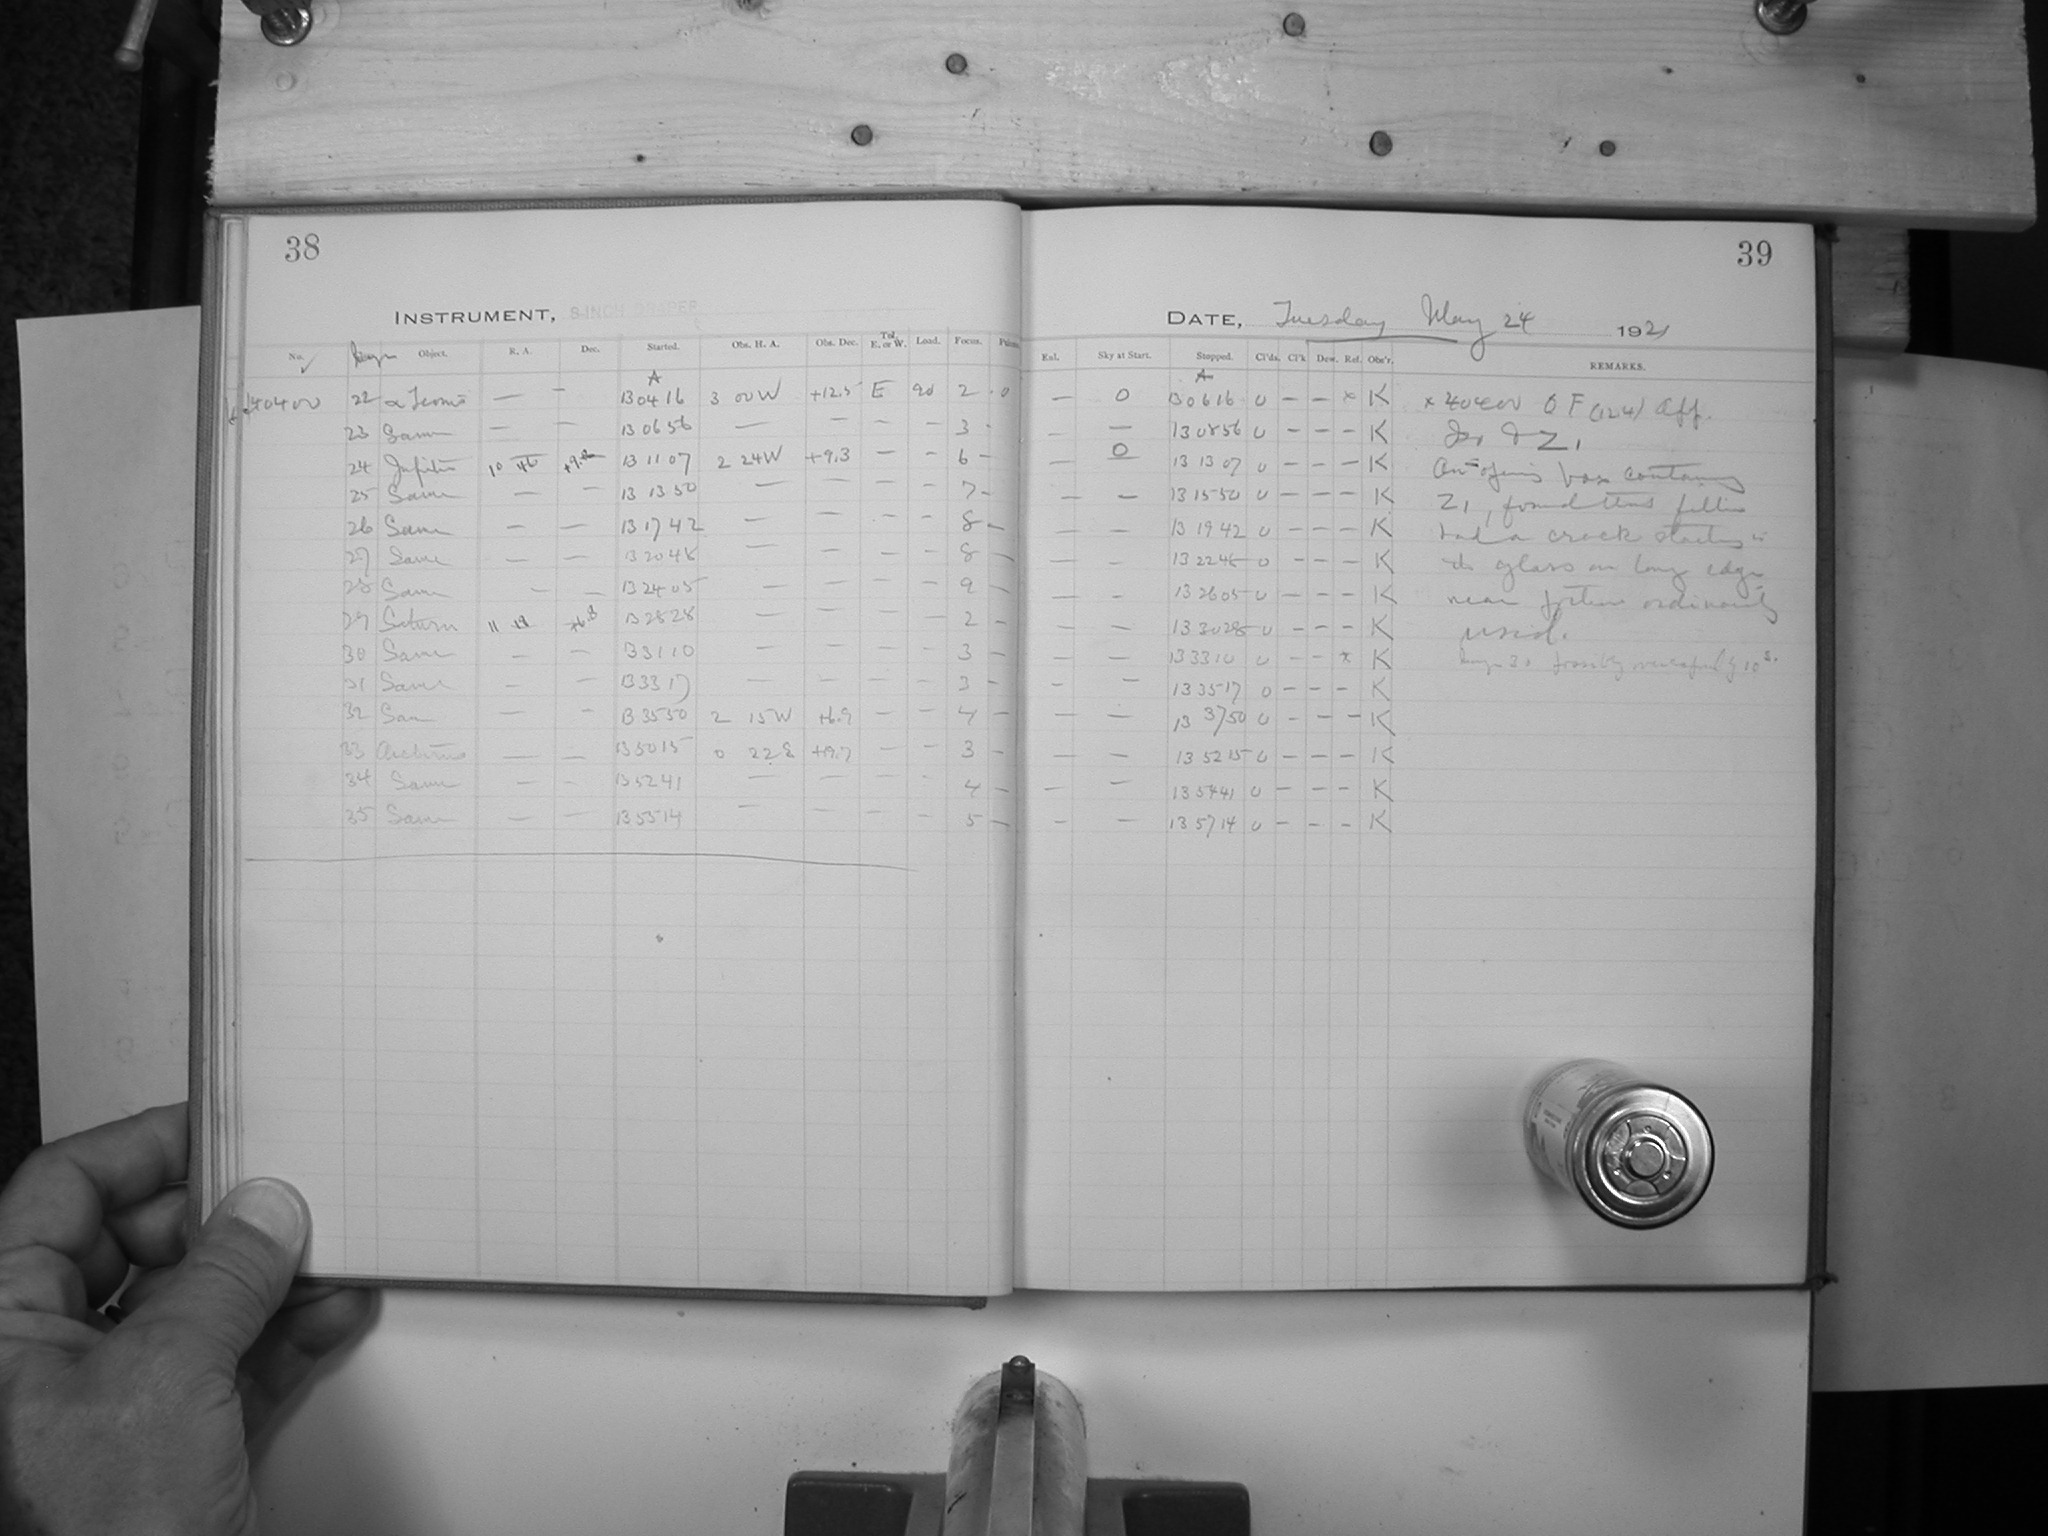 38
INSTRUMENT, 8-INCH DRAPER
No. Object. R. A. Dec. Started. Obs. H. A. Obs. Dec. Tel. E. or W. Load. Focus.
A
40400 22 α Leonis — — 13 04 16 3 00 W +12.5 E 90 2 . 0
23 Same — — 13 06 56 — — — — 3 -
24 Jupiter 10 46 13 11 07 2 24 W +9.3 — — 6 -
25 Same — — 13 13 50 — — — — 7 -
26 Same — — 13 17 42 — — — — 8 -
27 Same — — 13 20 48 — — — — 8 —
28 Same — — 13 24 05 — — — — 9 —
29 Saturn 11 +6.8 13 28 28 — — — 2 -
30 Same — — 13 31 10 — — — — 3 -
31 Same — — 13 33 17 — — — — 3 -
32 Sam — — 13 35 50 2 15 W +6.9 — — 4 -
33 Arcturus — — 13 50 15 0 22 E +19.7 — — 3 -
34 Same — — 13 52 41 — — — 4 -
35 Same — — 13 55 14 — — — — 5 —
39
DATE, Tuesday May 24 1921
Enl. Sky at Start. Stopped. Cl'ds. Cl'k Dew. Ref. Obs'r. REMARKS.
A
— 0 13 06 16 0 — — x K x 40400 O F (124) aff.
— — 13 08 56 0 - - - K Z1
— 0 13 13 07 0 - - - K On opening box containing
— — 13 15 50 0 - - - K Z1, found this filter
— — 13 19 42 0 - - - K had a crack starting in
— — 13 22 48 0 - - - K its glass on long edge
— — 13 26 05 0 - - - K near portion ordinarily
— — 13 30 28 0 - - - K used.
— — 13 33 10 0 - - x K possibly 10 s.
— — 13 35 17 0 - - - K
— — 13 37 50 0 - - - K
— — 13 52 15 0 - - - K
— — 13 54 41 0 - - - K
— — 13 57 14 0 - - - K